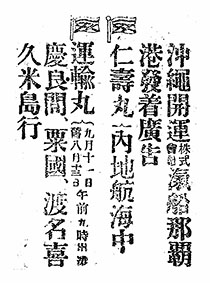 沖繩開運株式會社滊船那覇
港發着廣告
仁壽丸 内地航海中
運輸丸 九月十一日午前九時出港
舊八月十三日
慶良間、粟國、渡名喜
久米島行